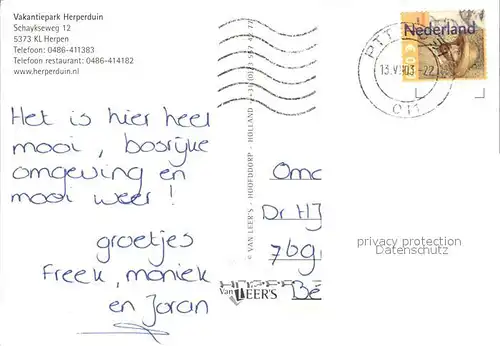 Vakantiepark Herperduin
Schaykseweg 12
5373 KL Herpen
Telefoon: 0486-411383
Telefoon restaurant: 0486-414182
www.herperduin.nl
Het is hier heel
mooi, bosrijke
omgeving en
mooi weer!
groetjes
Freek, moniek
en Joran
© VAN LEER'S - HOOFDDORP - HOLLAND
Van LEER'S
Nederland
PTT
Oma
Dr HJ
7bg
Be
privacy protection
Datenschutz